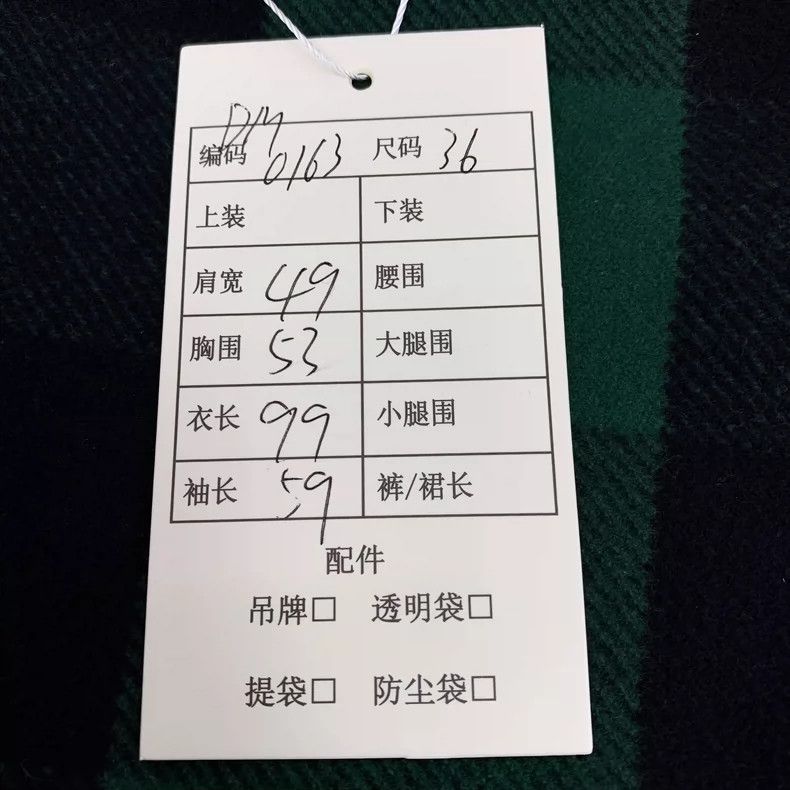 DM
编码 0163 尺码 36
上装 下装
肩宽 49 腰围
胸围 53 大腿围
衣长 99 小腿围
袖长 59 裤/裙长
配件
吊牌□ 透明袋□
提袋□ 防尘袋□